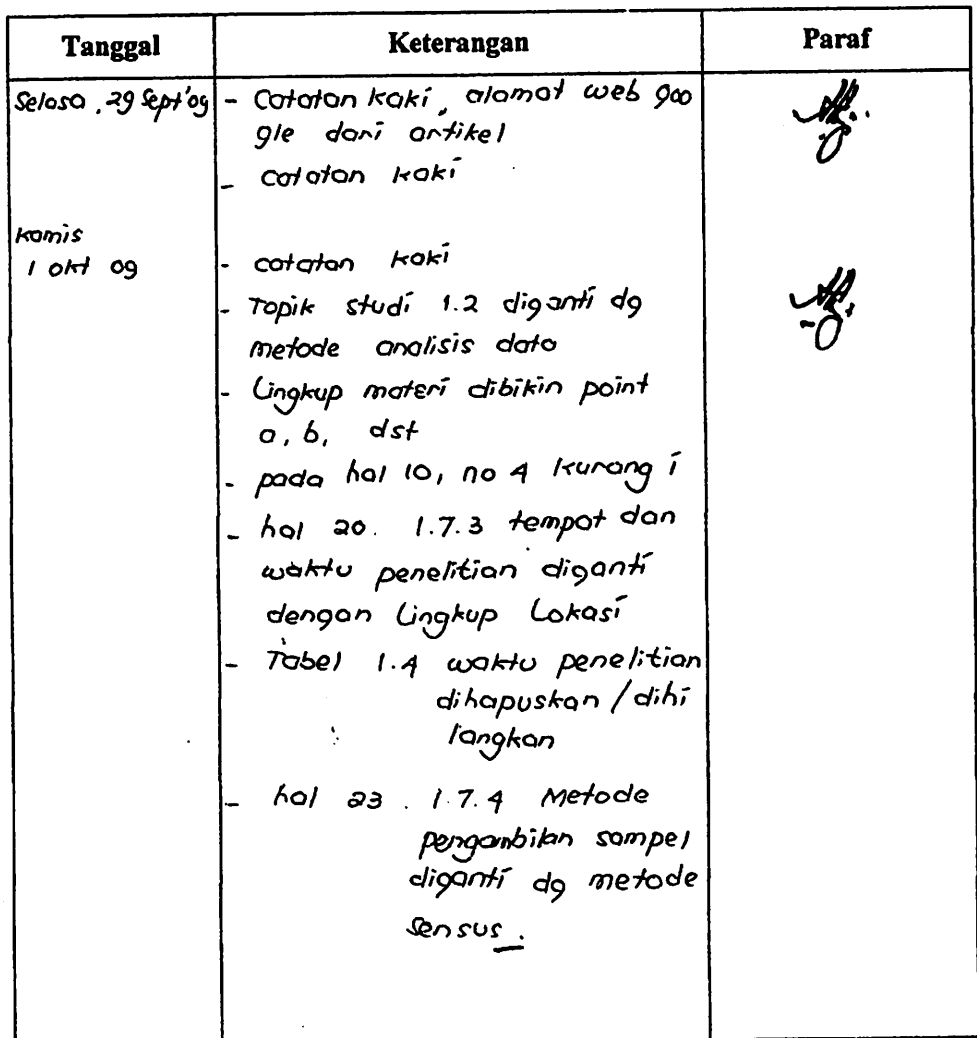 Tanggal Keterangan Paraf
Selasa, 29 Sept'09 - Catatan kaki, alamat web goo
gle dari artikel
- catatan kaki
Kamis
1 okt 09 - catatan kaki
- Topik studi 1.2 diganti dg
metode analisis data
- Lingkup materi dibikin point
a, b, dst
- pada hal 10, no 4 kurang i
- hal 20. 1.7.3 tempat dan
waktu penelitian diganti
dengan Lingkup Lokasi
- Tabel 1.4 waktu penelitian
dihapuskan / dihi
langkan
- hal 23. 1.7.4 Metode
pengambilan sampel
diganti dg metode
sensus.